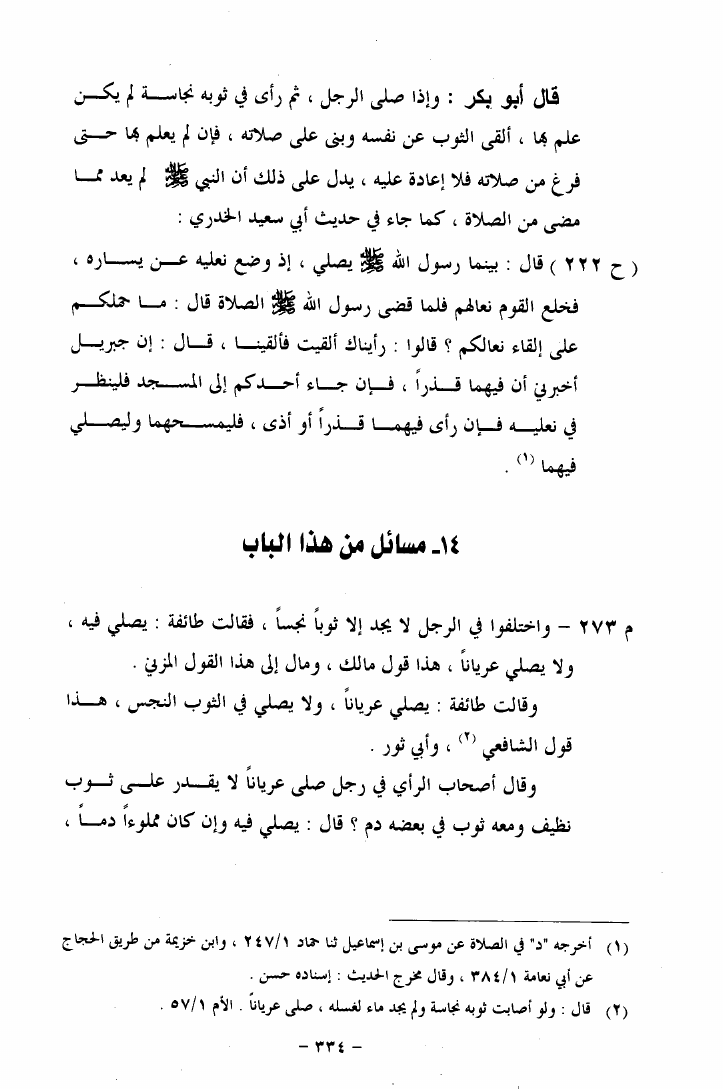 قال أبو بكر : وإذا صلى الرجل ، ثم رأى في ثوبه نجاســة لم يكــن
علم بها ، ألقى الثوب عن نفسه وبنى على صلاته ، فإن لم يعلم بها حــتى
فرغ من صلاته فلا إعادة عليه ، يدل على ذلك أن النبي ﷺ لم يعد ممــا
مضى من الصلاة ، كما جاء في حديث أبي سعيد الخدري :
( ح ٢٢٢ ) قال : بينما رسول الله ﷺ يصلي ، إذ وضع نعليه عــن يســاره ،
فخلع القوم نعالهم فلما قضى رسول الله ﷺ الصلاة قال : مــا حملكــم
على إلقاء نعالكم ؟ قالوا : رأيناك ألقيت فألقينــا ، قــال : إن جبريــل
أخبرني أن فيهما قــذراً ، فــإن جــاء أحــدكم إلى المسـجد فلينظــر
في نعليــه فــإن رأى فيهمــا قــذراً أو أذى ، فليمســحهما وليصلــي
فيهما (١) .
١٤ـ مسائل من هذا الباب
م ٢٧٣ – واختلفوا في الرجل لا يجد إلا ثوباً نجساً ، فقالت طائفة : يصلي فيه ،
ولا يصلي عرياناً ، هذا قول مالك ، ومال إلى هذا القول المزني .
وقالت طائفة : يصلي عرياناً ، ولا يصلي في الثوب النجس ، هــذا
قول الشافعي (٢) ، وأبي ثور .
وقال أصحاب الرأي في رجل صلى عرياناً لا يقــدر علــى ثــوب
نظيف ومعه ثوب في بعضه دم ؟ قال : يصلي فيه وإن كان مملوءاً دمــاً ،
(١) أخرجه "د" في الصلاة عن موسى بن إسماعيل ثنا حماد ٢٤٧/١ ، وابن خزيمة من طريق الحجاج
عن أبي نعامة ٣٨٤/١ ، وقال مخرج الحديث : إسناده حسن .
(٢) قال : ولو أصابت ثوبه نجاسة ولم يجد ماء لغسله ، صلى عرياناً . الأم ٥٧/١ .
– ٣٣٤ –